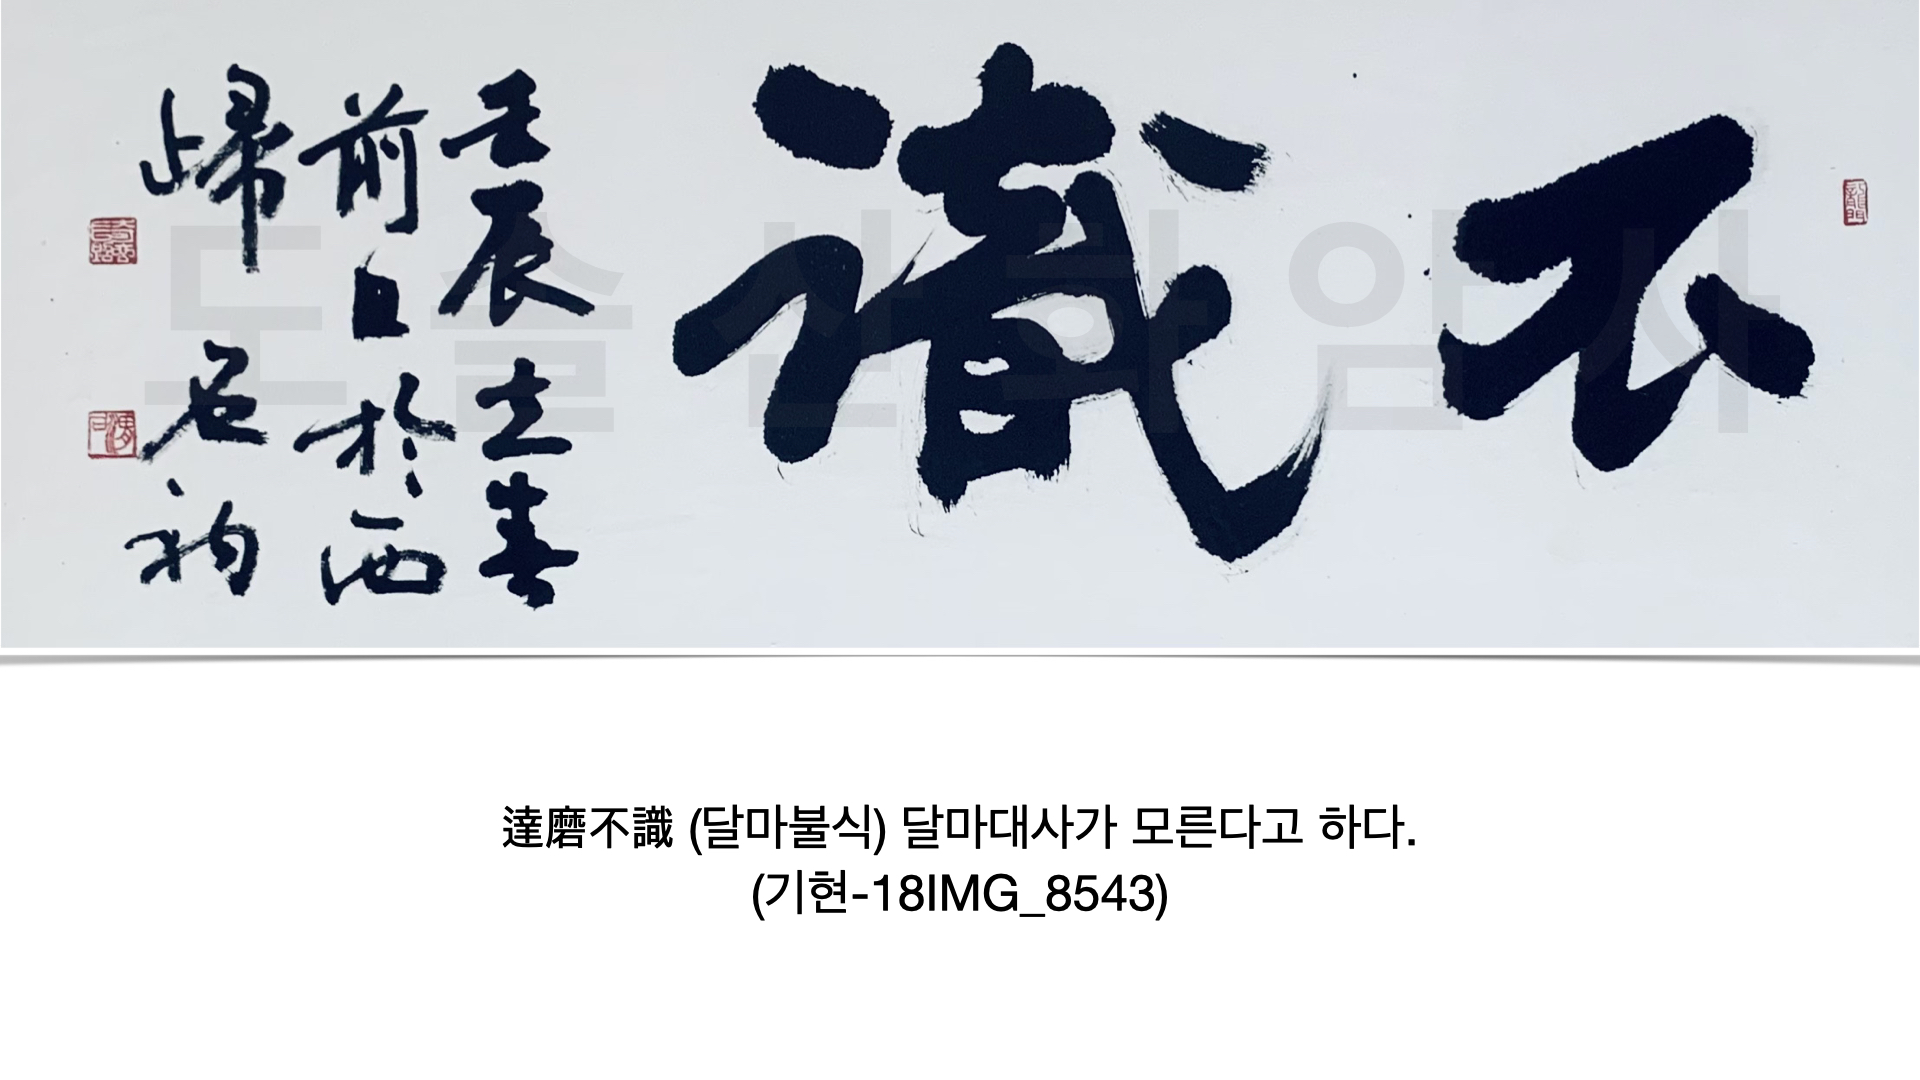 不識
壬辰立春
前日於西
歸
도솔산화암사
達磨不識 (달마불식) 달마대사가 모른다고 하다.
(기현-18IMG_8543)